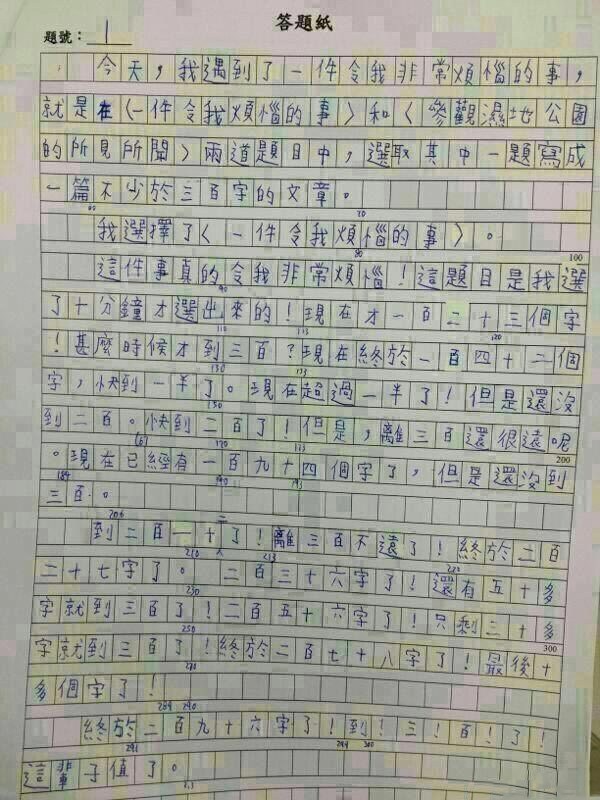 答題紙
題號：1
今天，我遇到了一件令我非常煩惱的事，
就是在〈一件令我煩惱的事〉和〈參觀濕地公園
的所見所聞〉兩道題目中，選取其中一題寫成
一篇不少於三百字的文章。
60 70
我選擇了〈一件令我煩惱的事〉。
80 100
這件事真的令我非常煩惱！這題目是我選
90
了十分鐘才選出來的！現在才一百二十三個字
110 113 120
！甚麼時候才到三百？現在終於一百四十二個
130 133
字，快到一半了。現在超過一半了！但是還沒
150
到二百。快到二百了！但是，離三百還很遠呢
161 170 173 200
。現在已經有一百九十四個字了，但是還沒到
184 190 193
三百。
206
到二百一十二了！離三百不遠了！終於二百
210 213 220
二十七字了。二百三十六字了！還有五十多
230
字就到三百了！二百五十六字了！只剩三十多
250 300
字就到三百了！終於二百七十八字了！最後十
270
多個字了！
284 290
終於二百九十六字了！到！三！百！了！
291 299 300
這輩子值了。
313